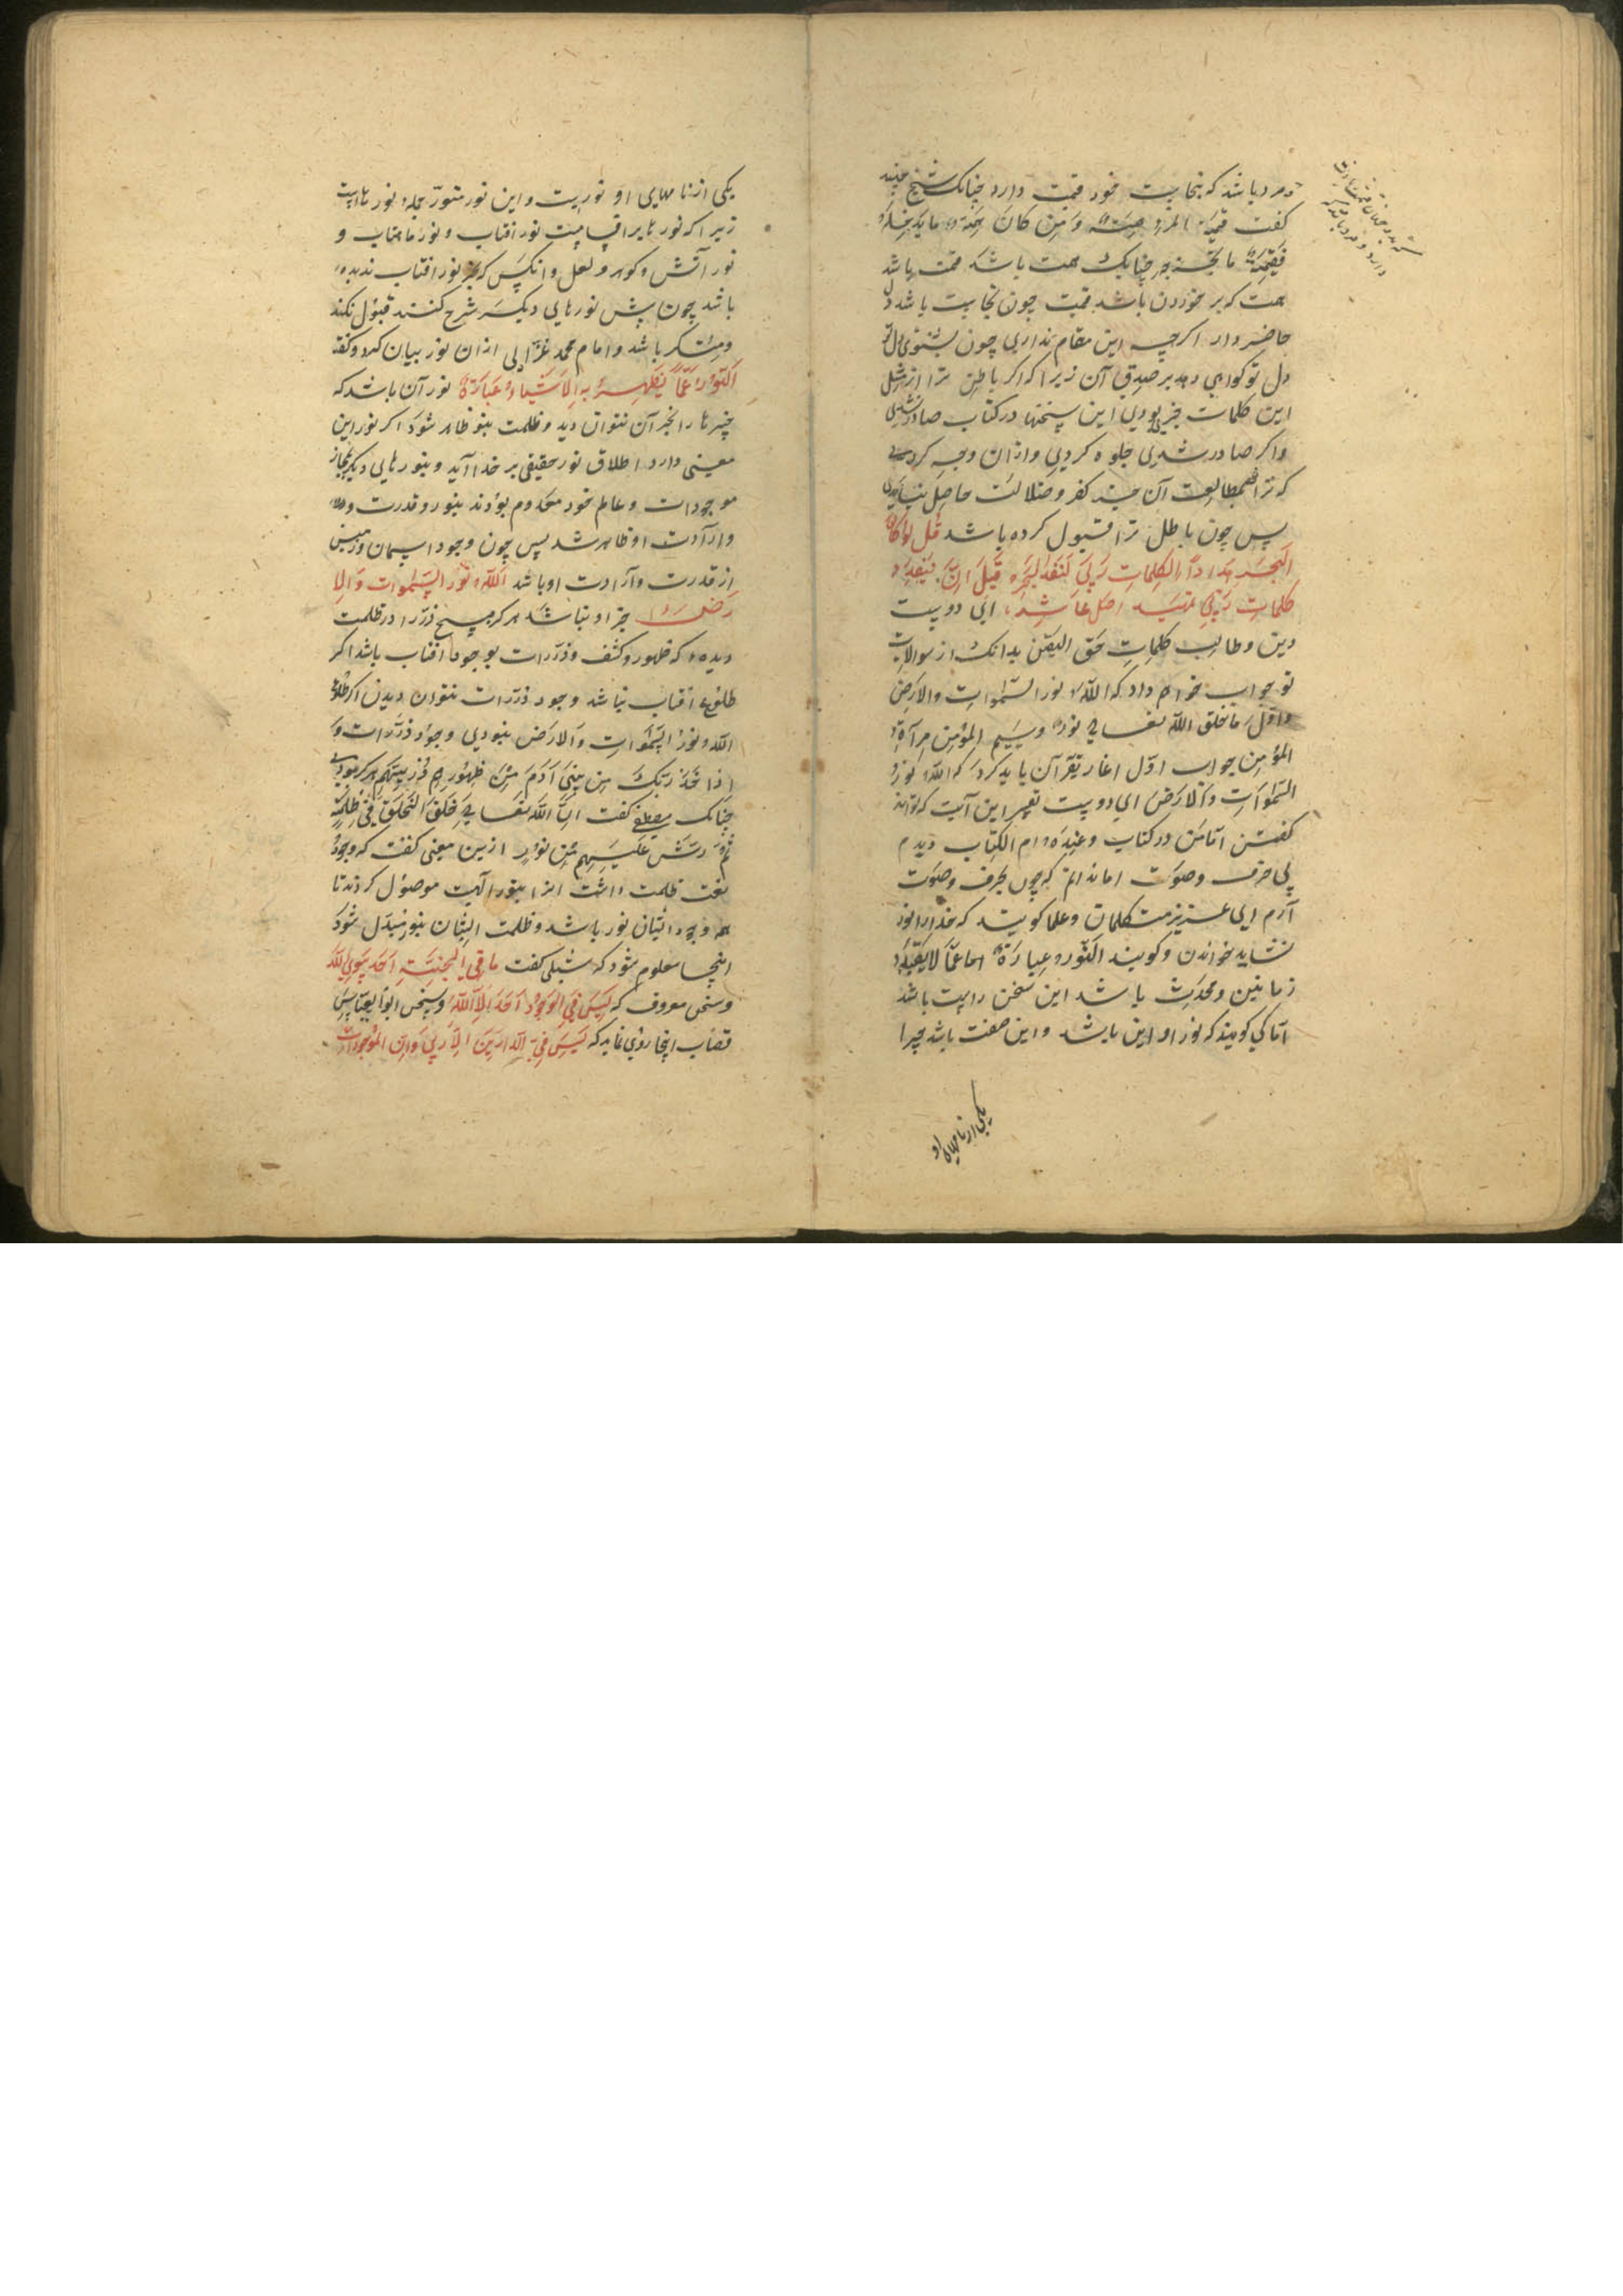 و مرد باشد که بنجاست خود قیمت دارد چنانک شیخ جنید
کفت قیمة المرء همته و من کان همته ما یدخله
فقیمته ما یخرجه چنانک همت باشد قیمت باشد
همت که بر خوردن باشد قیمت چون نجاست باشد دل
حاضر دار اکرچه این مقام نداری چون بشنوی دل تو
دل تو کواهی دهد بر صدق آن زیرا که اکر باطن ترا از مثل
این کلمات خبر بودی این سخنها در کتاب صادر نشدی
و اکر صادر شدی جلوه کردی و ازان وجه کردی
که ترا مطالعت آن جز کفر و ضلالت حاصل نیامدی
پس چون باطل ترا قبول کرده باشد قل لو کان
البحر مدادا لکلمات ربی لنفد البحر قبل ان تنفد
کلمات ربی تمهید اصل عاشر ای دوست
دین و طالب کلمات حق الیقین بدانک از سوالات
تو جواب خواهم داد که الله نور السموات والارض
و اول ما خلق الله تعالی نوری وسیم المؤمن مرآة
المؤمن جواب اول اغاز بقرآن باید کرد که الله نور
السموات والارض ای دوست تفسیر این آیت که تواند
کفتن اما من در کتاب و عنده ام الکتاب دیدم
بی حرف و صوت اما ندانم که چون بحرف و صوت
آرم ای عزیز متکلمان و علما کویند که خدا را نور
نشاید خواندن و کویند النور عبارة عما لا بقاء له
زمانین و محدث باشد این سخن راست باشد
اما کی کویند که نور او این باشد و این صفت باشد چرا
یکی از نامهای او
یکی از نامهای او نورست و این نور منور جمله نورهاست
زیرا که نورها بر اقسامست نور افتاب و نور ماهتاب و
نور آتش و کوهر و لعل و انکس که جز نور افتاب ندیده
باشد چون پیش نورهای دیکر شرح کنند قبول نکند
و منکر باشد و امام محمد غزالی ازان نور بیان کرد و کفته
النور عما یظهر به الاشیاء عبارة نور آن باشد که
چیزها را بجز آن نتوان دید و ظلمت بنور ظاهر شود اکر نور این
معنی دارد اطلاق نور حقیقی بر خدا آید و بنورهای دیکر مجاز
موجودات و عالم خود معدوم بودند بنور و قدرت و
و ارادت او ظاهر شد پس چون وجود اسمان و زمین
از قدرت و ارادت او باشد الله نور السموات والا
رض جز او نباشد هرکز هیچ ذره را در ظلمت
دیده که ظهور و کشف و ذرات بوجود افتاب باشد اکر
طلوع افتاب نباشد وجود ذرات نتوان دیدن اکر طلوع
الله نور السموات والارض نبودی وجود ذرات و
اذ اخذ ربک من بنی آدم من ظهورهم ذریتهم هرکز نبودی
چنانک مصطفی کفت ان الله تعالی خلق الخلق فی ظلمة
ثم رش علیهم من نوره ازین معنی کفت که وجود
نعت ظلمت داشت انرا بنور الهیت موصول کردند تا
همه وجود ایشان نور باشد و ظلمت ایشان بنور مبدل شود
اینجا معلوم شود که شبلی کفت ما فی الجنة احد سوی الله
و سخن معروف که لیس فی الوجود احد الا الله و سخن ابوالعباس
قصاب اینجا روی نماید که لیس فی الدارین الا ربی و ان الموجودات